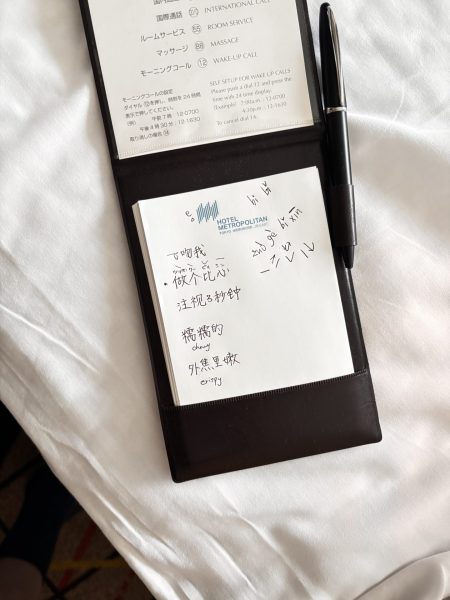 国際通話 INTERNATIONAL CALL
ルームサービス ROOM SERVICE
マッサージ 88 MASSAGE
モーニングコール 12 WAKE-UP CALL
モーニングコールの設定
ダイヤル⑫を押し、時刻を24時間
表示で押してください。
(例) 午前7時: 12-0700
午後4時30分: 12-1630
取り消しの場合 ⑭
SELF SETUP FOR WAKE UP CALLS
Please push a dial 12 and press the
time with 24 time display.
(Example) 7:00a.m.: 12-0700
4:30p.m.: 12-1630
To cancel dial 14.
HOTEL
METROPOLITAN
zuò gè bǐ xīn
吻我
做个比心
注视3秒钟
糯糯的
chewy
外焦里嫩
crispy